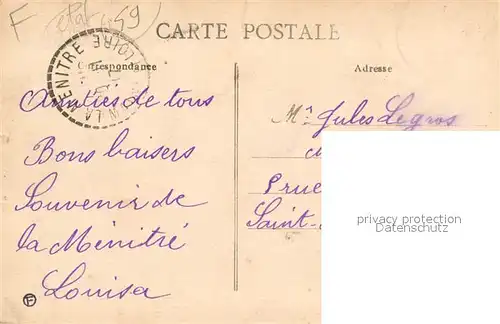 F
59
CARTE POSTALE
LA MENITRE
LOIRE
Correspondance
Adresse
Amitiés de tous
Bons baisers
Souvenir de
la Ménitré
Louisa
Mr Jules Legros
8 rue
Saint-
privacy protection
Datenschutz
F